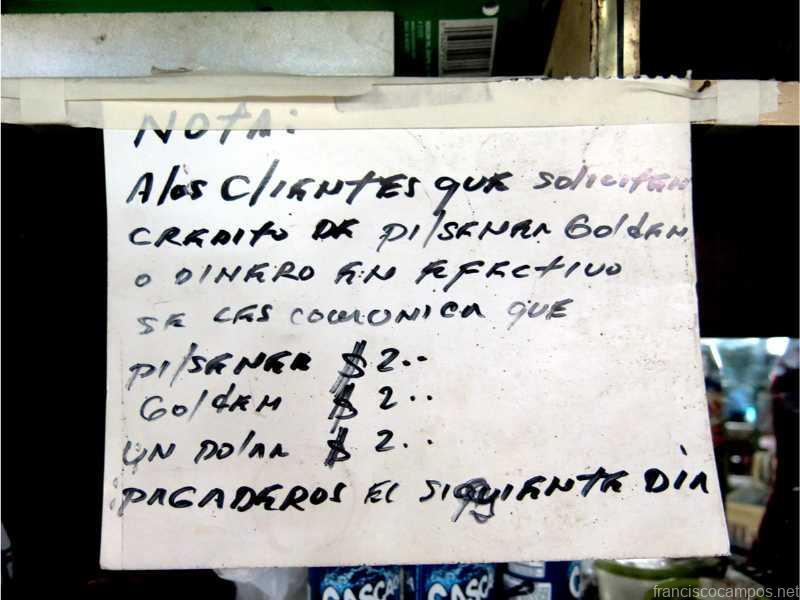 NOTA:
A los CLIENTES QUE SOLICITEN
CREDITO DE PILSENER GOLDEN
O DINERO EN EFECTIVO
SE LES COMUNICA QUE
PILSENER $ 2..
GOLDEN $ 2..
UN DOLAR $ 2..
¡PAGADEROS EL SIQUIENTE DIA
CASCA CASC
franciscocampos.net